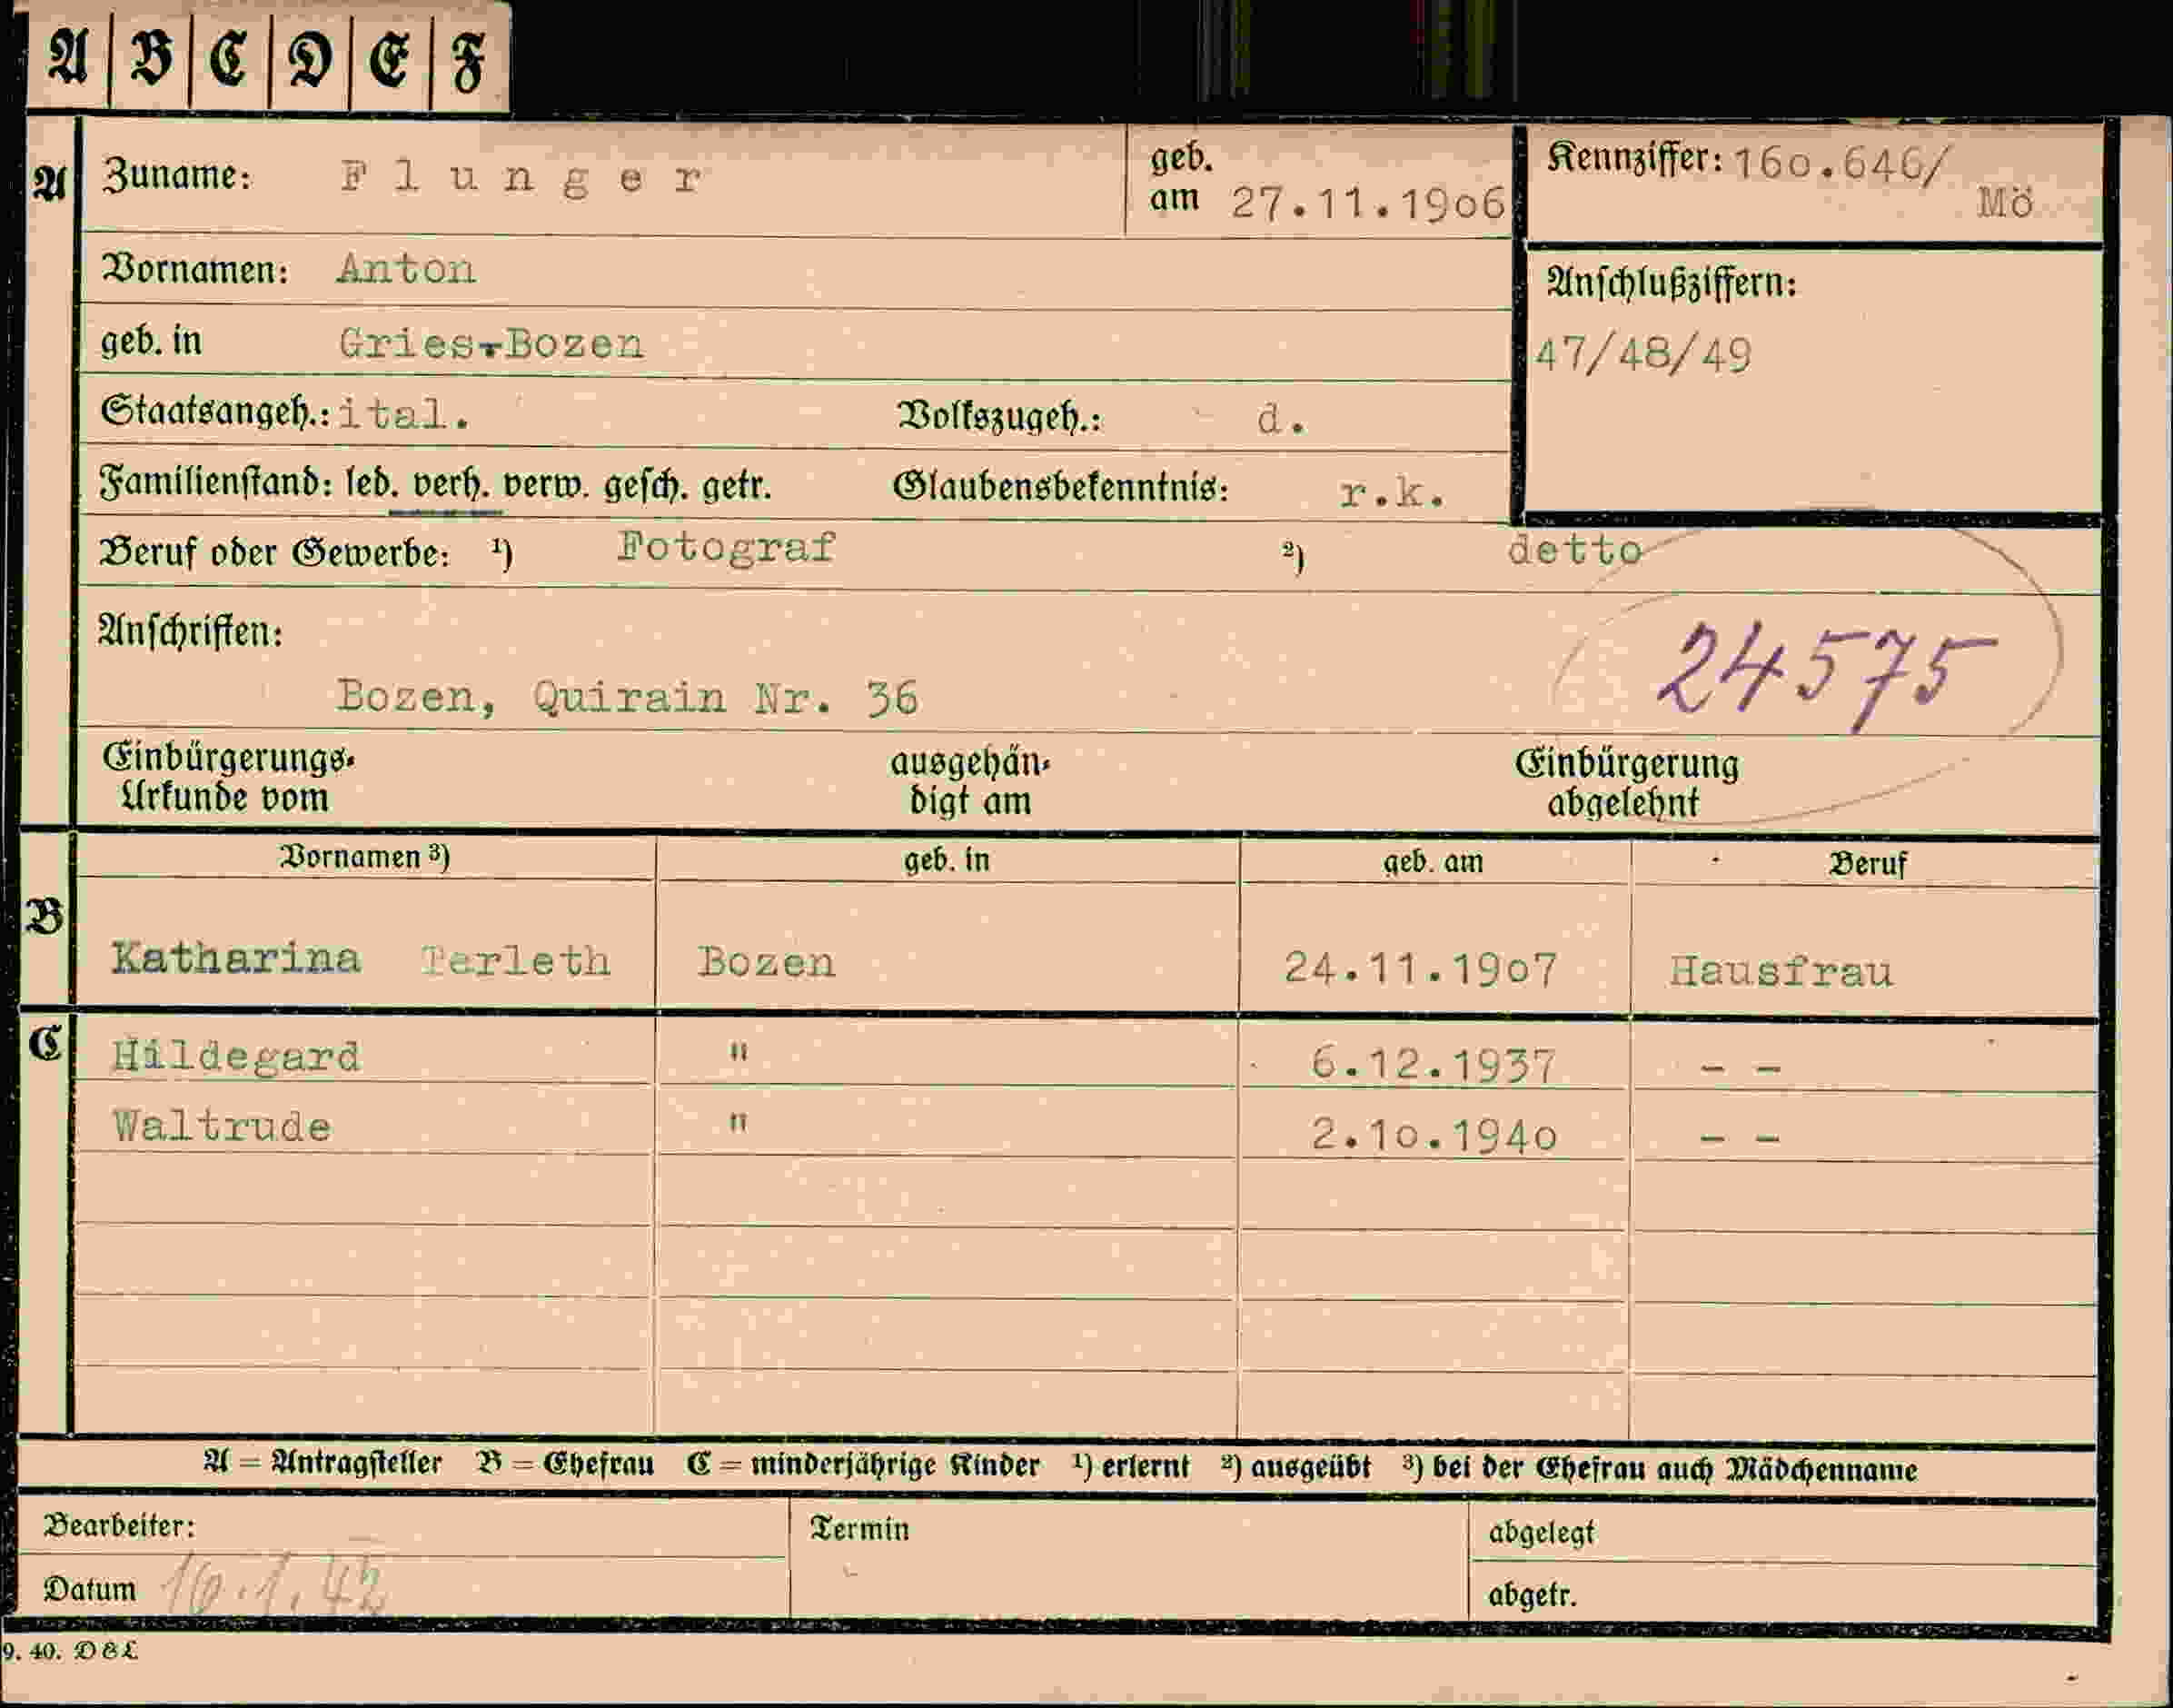 A B C D E F
A Zuname: Flunger geb. am 27.11.1906 Kennziffer: 160.646/ Mö
Vornamen: Anton
Anschlußziffern:
geb. in Gries-Bozen 47/48/49
Staatsangeh.: ital. Volkszugeh.: d.
Familienstand: led. verh. verw. gesch. getr. Glaubensbekenntnis: r.k.
Beruf oder Gewerbe: ¹) Fotograf ²) detto
Anschriften:
24575
Bozen, Quirain Nr. 36
Einbürgerungs-Urkunde vom ausgehän-digt am Einbürgerung abgelehnt
Vornamen ³) geb. in geb. am Beruf
B Katharina Terleth Bozen 24.11.1907 Hausfrau
C Hildegard " 6.12.1937 – –
Waltrude " 2.10.1940 – –
A = Antragsteller B = Ehefrau C = minderjährige Kinder ¹) erlernt ²) ausgeübt ³) bei der Ehefrau auch Mädchenname
Bearbeiter: Termin abgelegt
Datum 16.1.42 abgetr.
9. 40. D&L